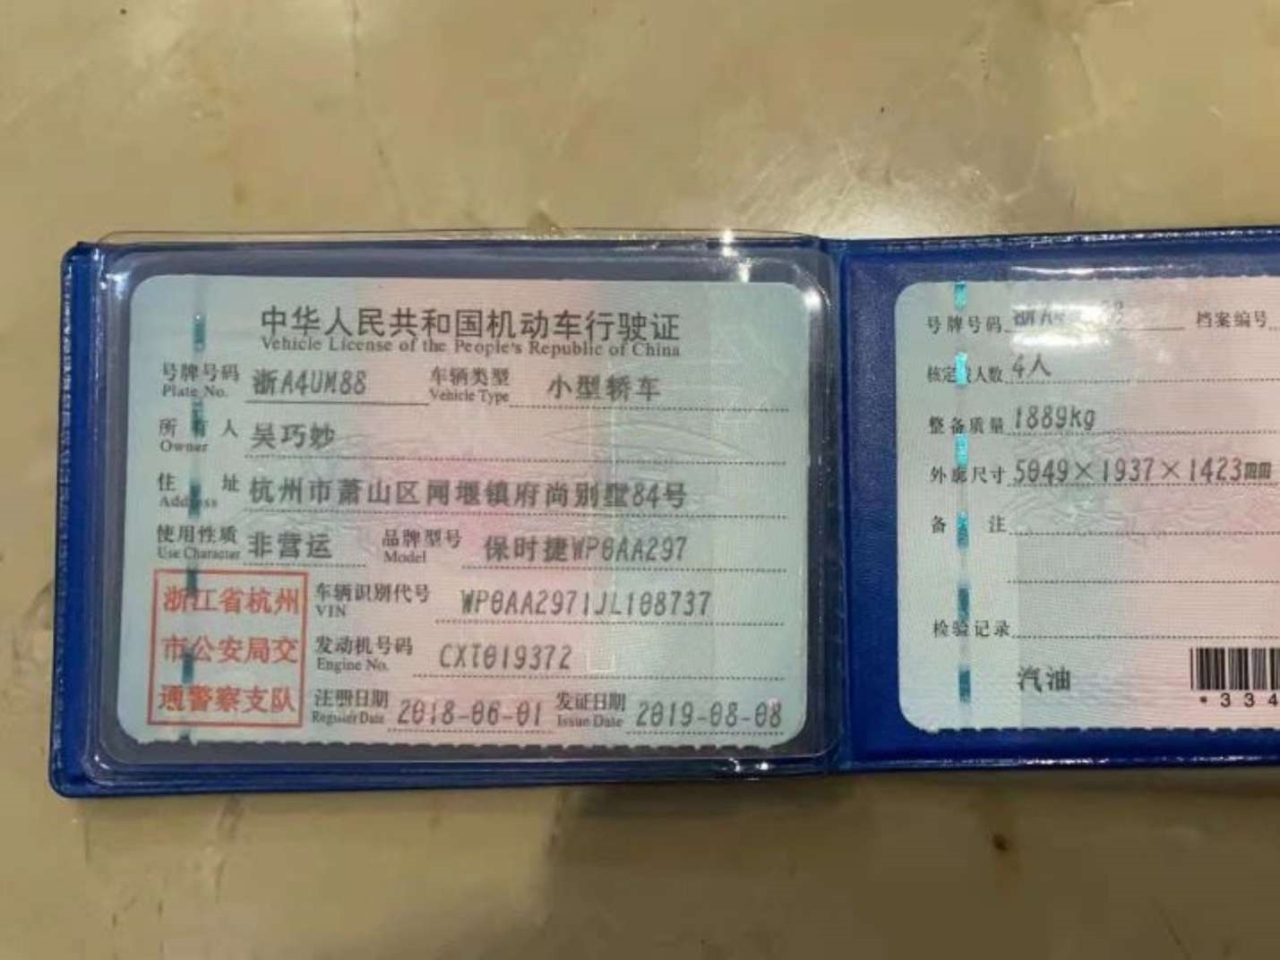 中华人民共和国机动车行驶证
Vehicle License of the People's Republic of China
号牌号码 浙A4UM88 车辆类型 小型轿车
Plate No. Vehicle Type
所有人 吴巧妙
Owner
住址 杭州市萧山区闻堰镇府尚别墅84号
Address
使用性质 非营运 品牌型号 保时捷WP0AA297
Use Character Model
浙江省杭州
市公安局交
通警察支队
车辆识别代号 WP0AA2971JL108737
VIN
发动机号码 CXT019372
Engine No.
注册日期 2018-06-01 发证日期 2019-08-08
Register Date Issue Date
号牌号码 档案编号
核定载人数 4人
整备质量 1889kg
外廓尺寸 5049×1937×1423
备注
检验记录
汽油
*334